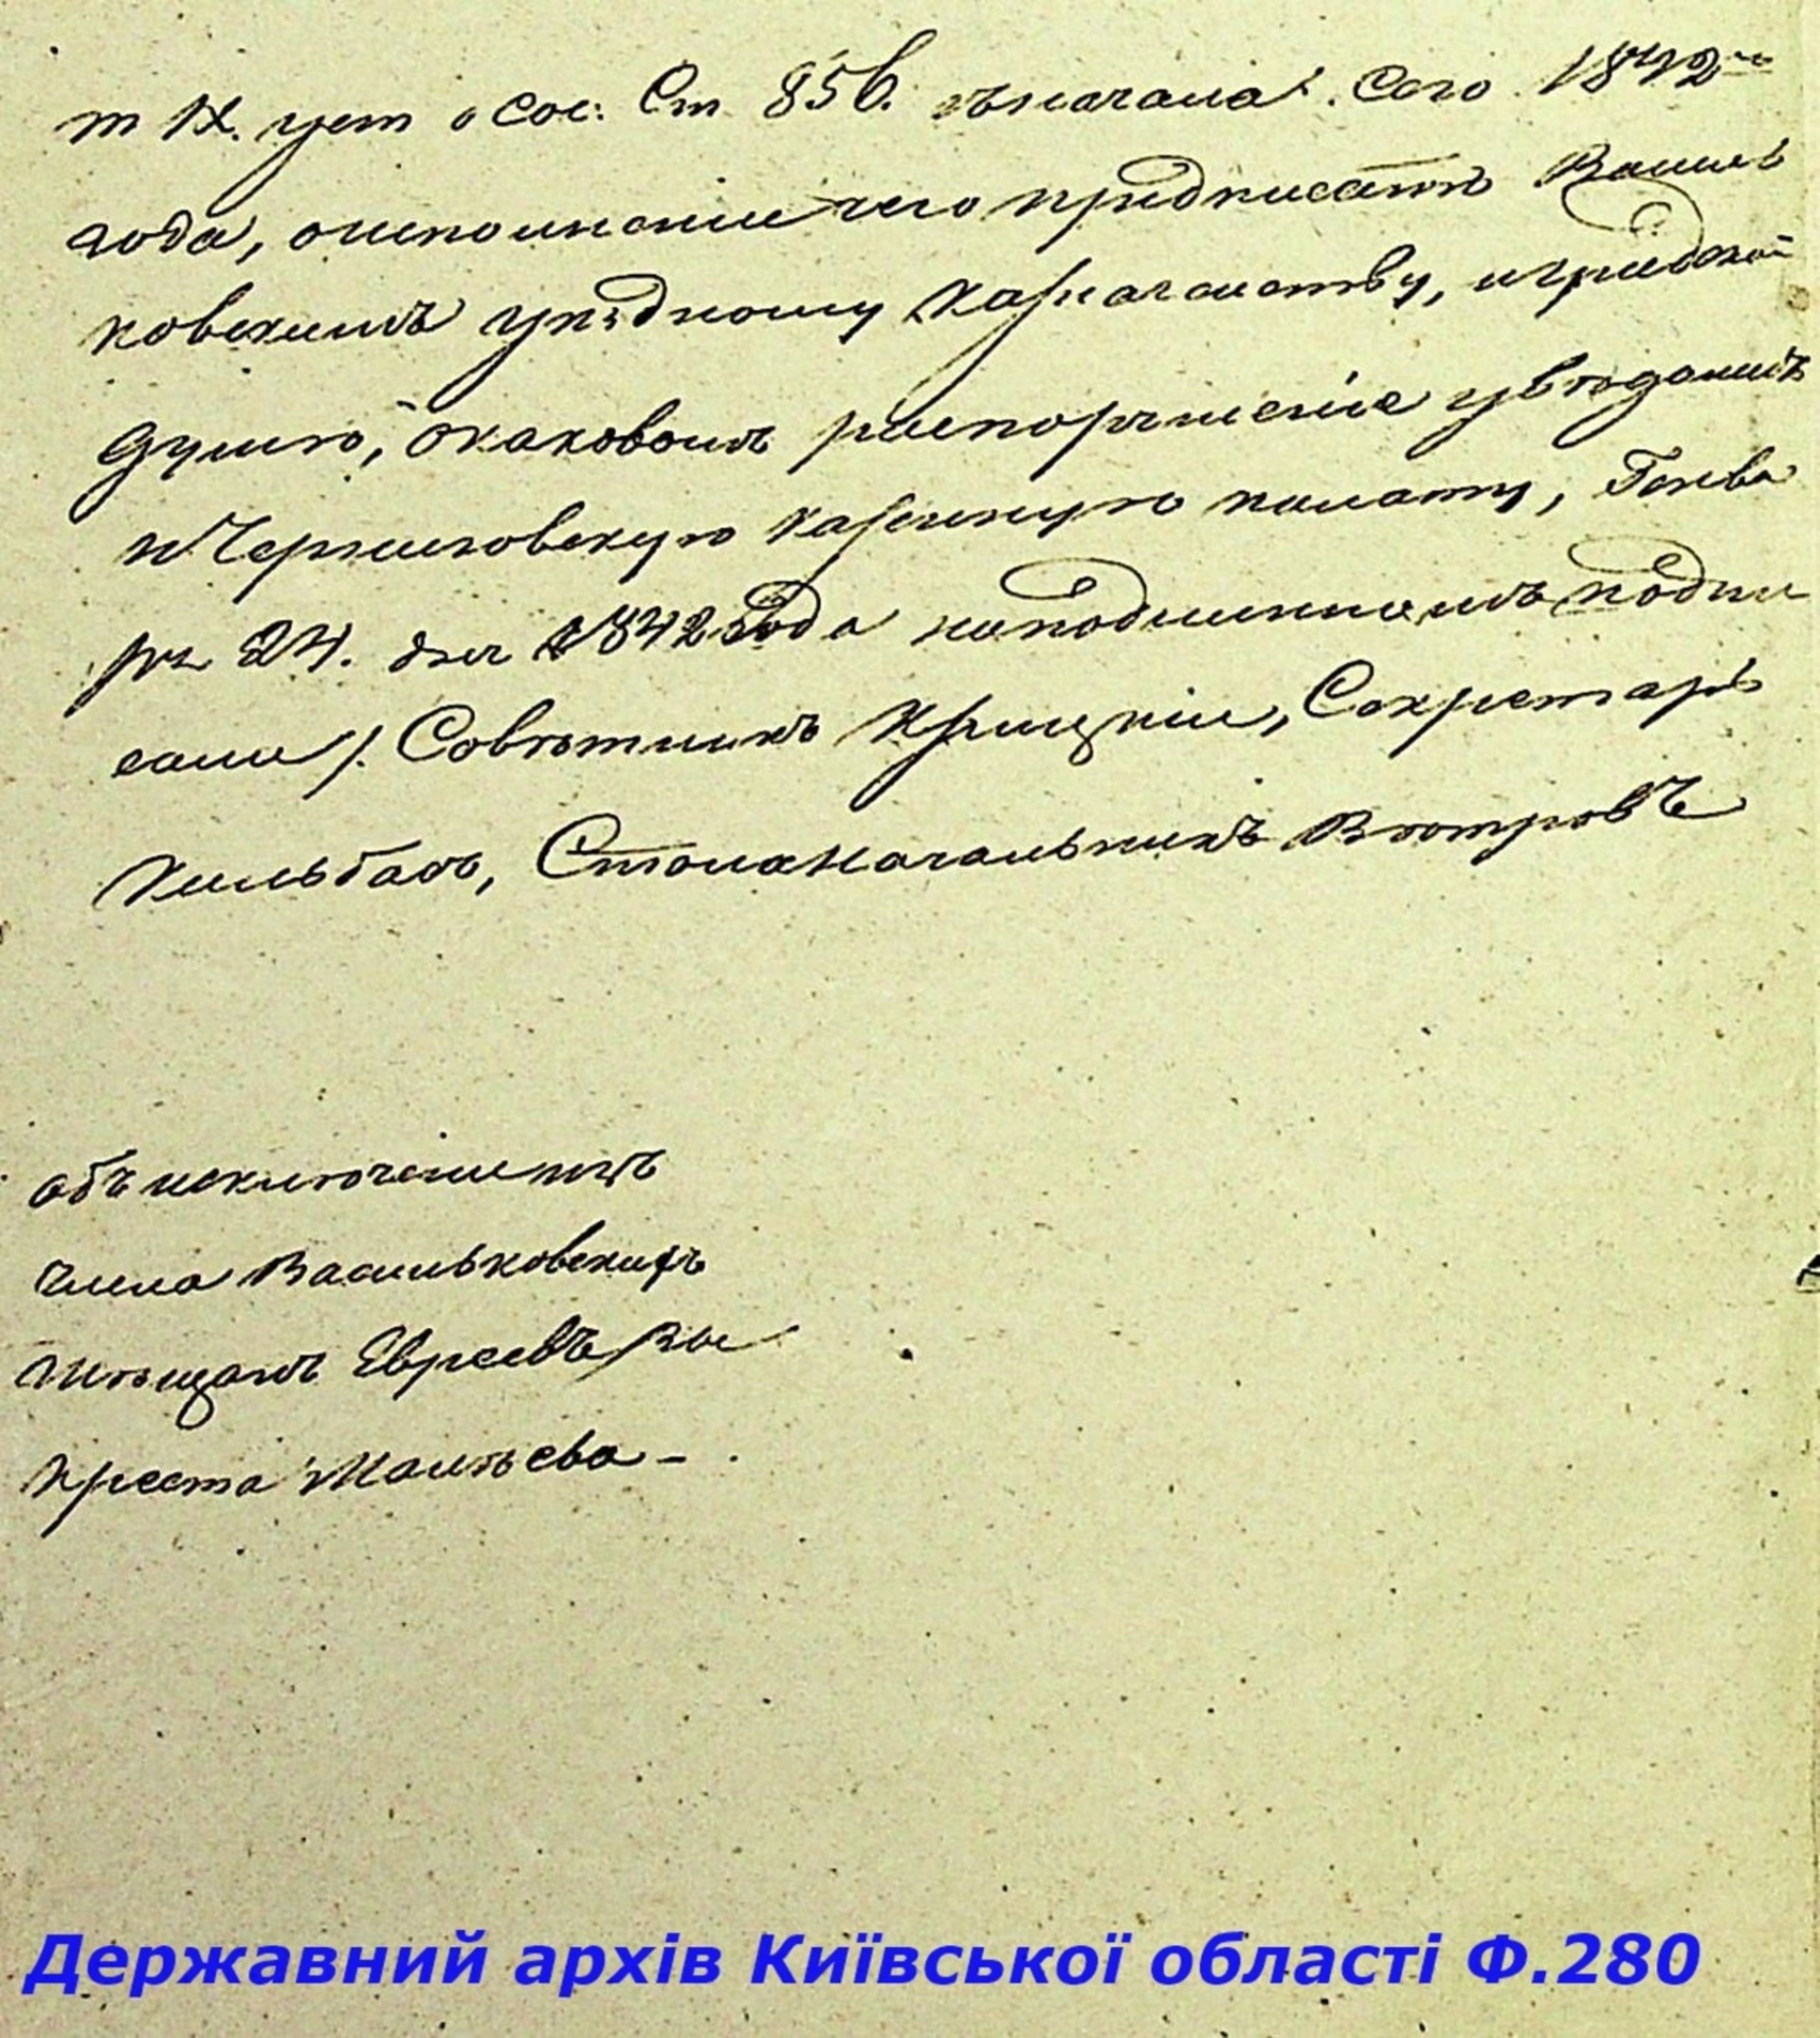 т IX. уст о сос: Ст 856. съначала. Сего 1842го
года, оисполнении чего предписать Василь
ковскимъ уѣздному казначейству, игридской
думѣ, окаковомъ распоряженіе увѣдомить
иЧерниговскую казенную палату, Генва
ря 24. дня 1842 года наподлинномъ подпи
сали /. Совѣтникъ Крицкій, Секретарь
Кильбасъ, Столаначальникъ Вѣтровъ
объ исключеніи изъ
числа Васильковскихъ
мѣщанъ Евреевъ Вы
креста Малѣева -
Державний архів Київської області Ф.280